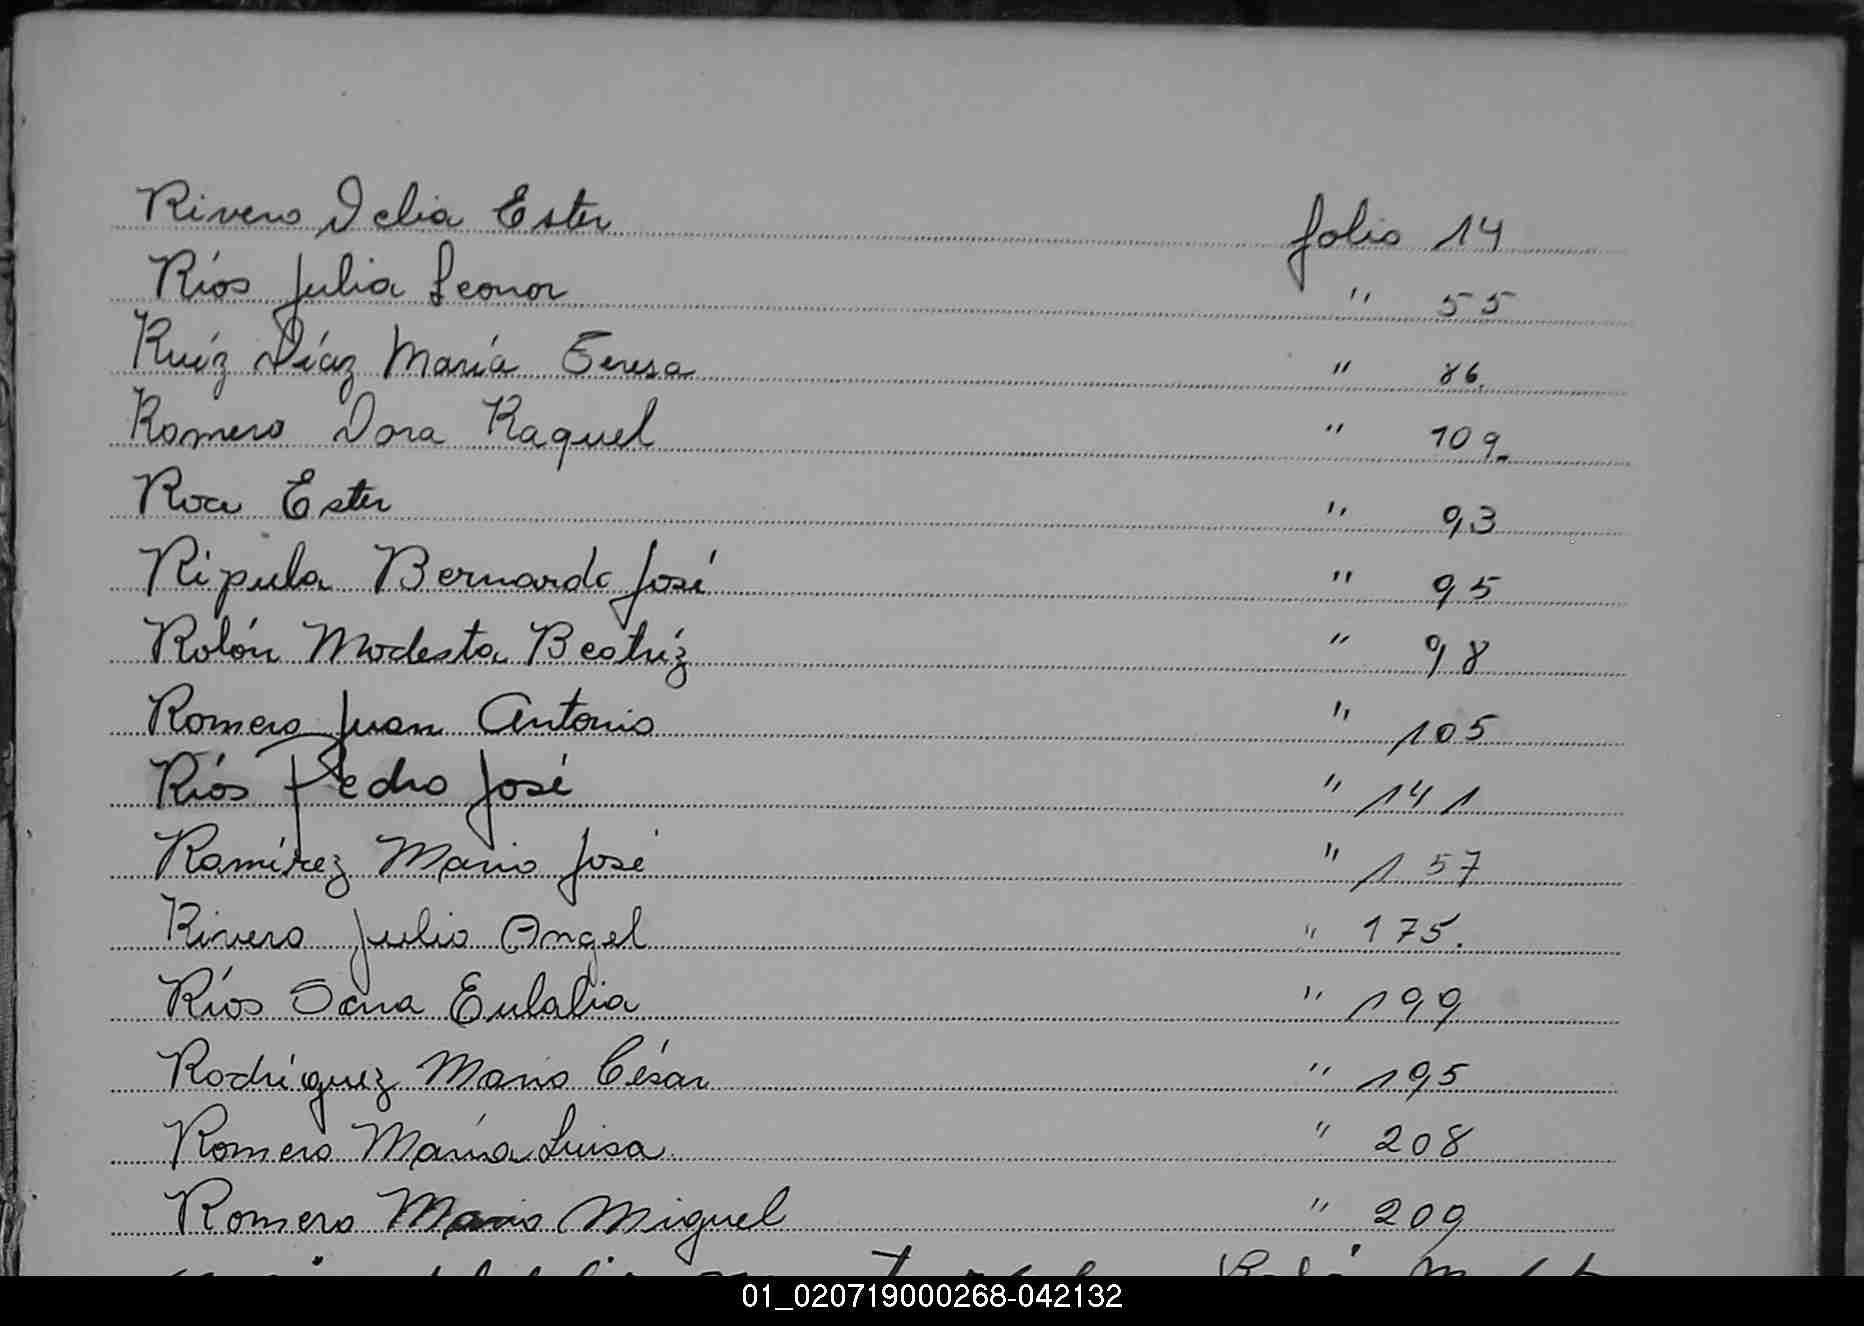 Rivero Delia Ester folio 14
Ríos Julia Leonor " 55
Ruíz Díaz María Teresa " 86.
Romero Dora Raquel " 109.
Roa Ester " 93
Ripula Bernardo José " 95
Rolón Modesta Beatríz " 98
Romero Juan Antonio " 105
Ríos Pedro José " 141
Ramírez Mario José " 157
Rivero Julio Angel " 175.
Ríos Sara Eulalia " 199
Rodríguez Mario César " 195
Romero María Luisa " 208
Romero Mario Miguel " 209
01_020719000268-042132